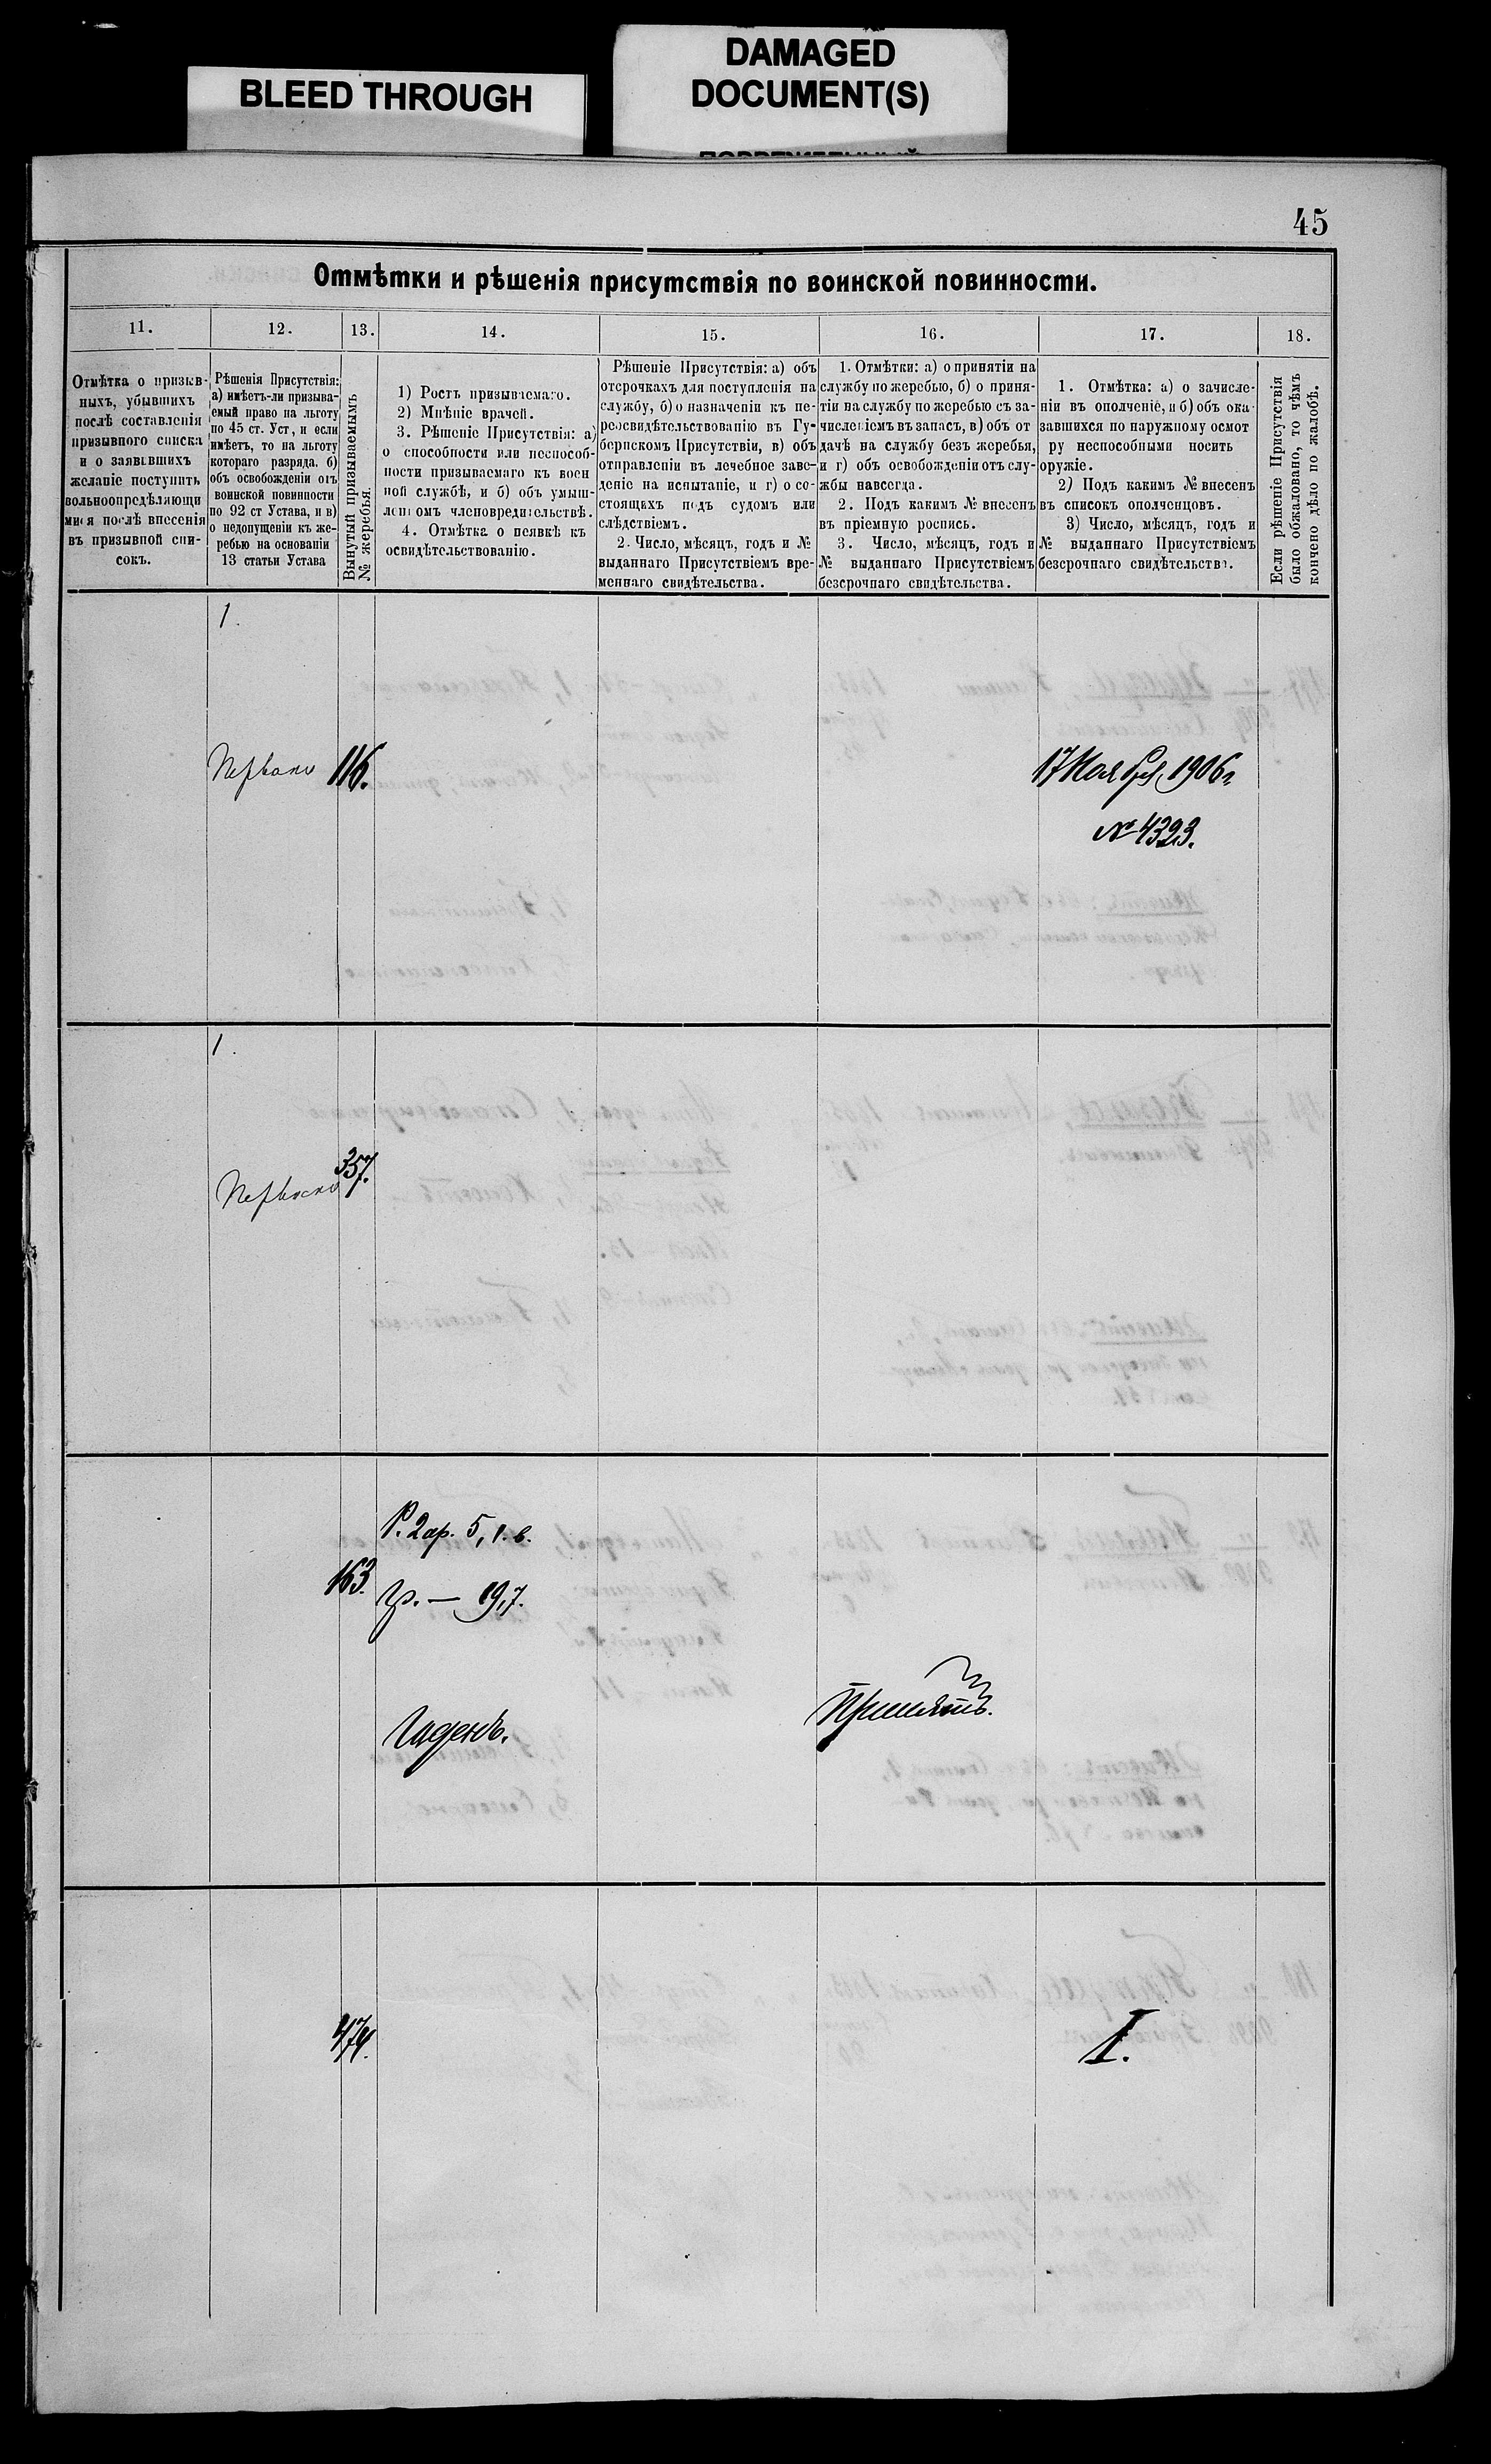 BLEED THROUGH
DAMAGED
DOCUMENT(S)
45
Отмѣтки и рѣшенія присутствія по воинской повинности.
11.
12.
13.
14.
15.
16.
17.
18.
Отмѣтка о призыв-
ныхъ, убывшихъ
послѣ составленія
призывного списка
и о заявившихъ
желаніе поступить
вольноопредѣляющи
мися послѣ внесенія
въ призывной спи-
сокъ.
Рѣшенія Присутствія:
а) имѣетъ-ли призыва-
емый право на льготу
по 45 ст. Уст, и если
имѣетъ, то на льготу
котораго разряда, б)
объ освобожденіи отъ
воинской повинности
по 92 ст Устава, и в)
о недопущеніи къ же-
ребью на основаніи
13 статьи Устава
Вынутый призываемымъ
№ жеребья.
1) Ростъ призываемаго.
2) Мнѣніе врачей.
3. Рѣшеніе Присутствія: а)
о способности или неспособ-
ности призываемаго къ воен
ной службѣ, и б) объ умыш-
ленномъ членовредительствѣ.
4. Отмѣтка о неявкѣ къ
освидѣтельствованію.
Рѣшеніе Присутствія: а) объ
отсрочкахъ для поступленія на
службу, б) о назначеніи къ пе-
реосвидѣтельствованію въ Гу-
бернскомъ Присутствіи, в) объ
отправленіи въ лечебное заве-
деніе на испытаніе, и г) о со-
стоящихъ подъ судомъ или
слѣдствіемъ.
2. Число, мѣсяцъ, годъ и №
выданнаго Присутствіемъ вре-
меннаго свидѣтельства.
1. Отмѣтки: а) о принятіи на
службу по жеребью, б) о приня-
тіи на службу по жеребью съ за-
численіемъ въ запасъ, в) объ от
дачѣ на службу безъ жеребья,
и г) объ освобожденіи отъ слу-
жбы навсегда.
2. Подъ какимъ № внесенъ
въ пріемную роспись.
3. Число, мѣсяцъ, годъ и
№ выданнаго Присутствіемъ
безсрочнаго свидѣтельства.
1. Отмѣтка: а) о зачисле-
ніи въ ополченіе, и б) объ ока-
завшихся по наружному осмот
ру неспособными носить
оружіе.
2) Подъ какимъ № внесенъ
въ списокъ ополченцовъ.
3) Число, мѣсяцъ, годъ и
№ выданнаго Присутствіемъ
безсрочнаго свидѣтельства.
Если рѣшеніе Присутствія
было обжаловано, то чѣмъ
кончено дѣло по жалобѣ.
1.
Перваго
116.
17 Ноября 1906 г.
№ 4323.
1.
Перваго
357.
Р. 2 ар. 5, 1. в.
163.
Гр. — 19,7.
Годенъ.
Принятъ.
474.
I.